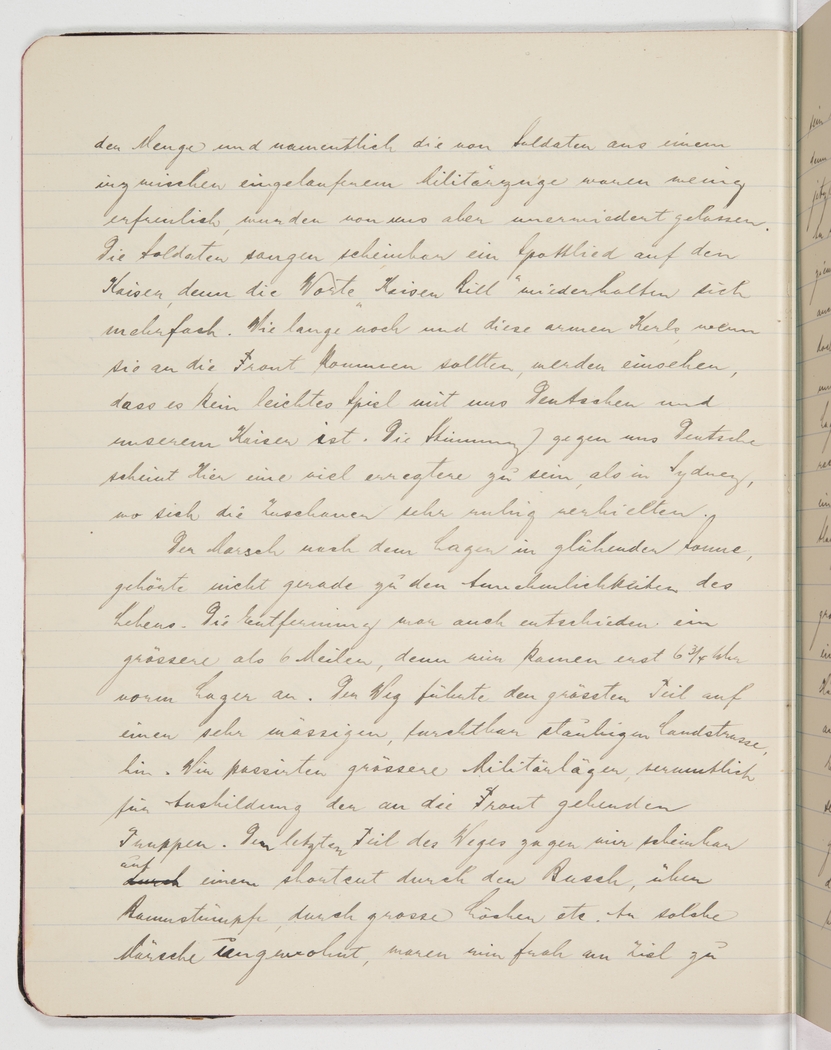 der Menge und namentlich die von Soldaten aus einem
inzwischen eingelaufenem Militärzuge waren wenig
erfreulich, wurden von uns aber unerwiedert gelassen.
Die Soldaten sangen scheinbar ein Spottlied auf den
Kaiser, denn die Worte „Kaiser Bill" wiederholten sich
mehrfach. Wie lange noch und diese armen Kerls, wenn
sie an die Front kommen sollten, werden einsehen,
dass es kein leichtes Spiel mit uns Deutschen und
unserem Kaiser ist. Die Stimmung gegen uns Deutsche
scheint hier eine viel erregtere zu sein, als in Sydney,
wo sich die Zuschauer sehr ruhig verhielten.
Der Marsch nach dem Lager in glühender Sonne,
gehörte nicht gerade zu den Annehmlichkeiten des
Lebens. Die Entfernung war auch entschieden ein
grössere als 6 Meilen, denn wir kamen erst 6 3/4 Uhr
vorm Lager an. Der Weg führte den grössten Teil auf
einer sehr mässigen, furchtbar staubigen Landstrasse,
hin. Wir passirten grössere Militärläger, vermutlich
für Ausbildung der an die Front gehenden
Truppen. Den letzten Teil des Weges zogen wir scheinbar
auf
durch einem shortcut durch den Busch, über
Baumstümpfe, durch grosse Löcher etc. An solche
Märsche ungewohnt, waren wir froh am Ziel zu